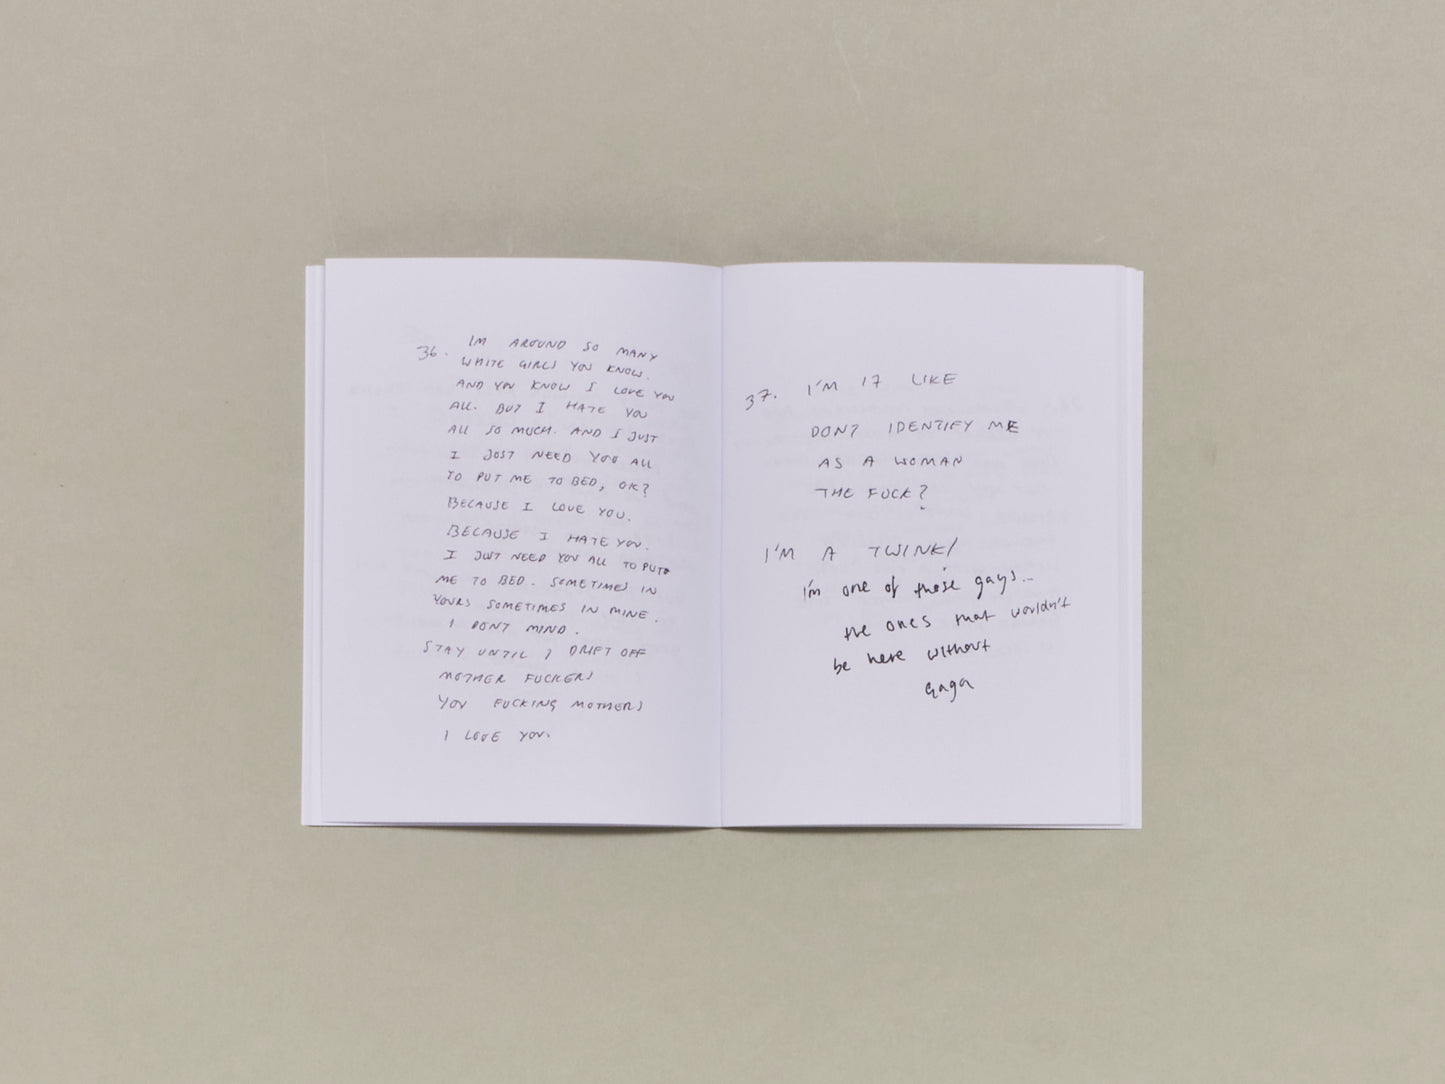 36. IM AROUND SO MANY
WHITE GIRLS YOU KNOW.
AND YOU KNOW I LOVE YOU
ALL. BUT I HATE YOU
ALL SO MUCH. AND I JUST
I JUST NEED YOU ALL
TO PUT ME TO BED, OK?
BECAUSE I LOVE YOU.
BECAUSE I HATE YOU.
I JUST NEED YOU ALL TO PUT
ME TO BED. SOMETIMES IN
YOURS SOMETIMES IN MINE.
I DONT MIND.
STAY UNTIL I DRIFT OFF
MOTHER FUCKERS
YOU FUCKING MOTHERS
I LOVE YOU.
37. I'M 17 LIKE
DONT IDENTIFY ME
AS A WOMAN
THE FUCK?
I'M A TWINK!
I'm one of those gays...
the ones that wouldn't
be here without
gaga